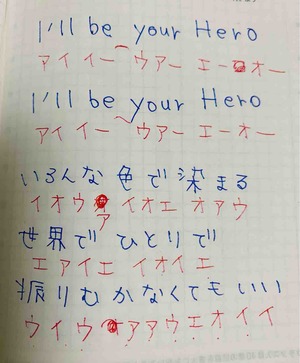 I'll be your Hero
アイ イー ウアー エーオー
I'll be your Hero
アイ イー ウアー エーオー
いろんな色で染まる
イオウア イオエ オアウ
世界で ひとりで
エアイエ イオイエ
振りむかなくてもいい
ウイウアアウエオイイ